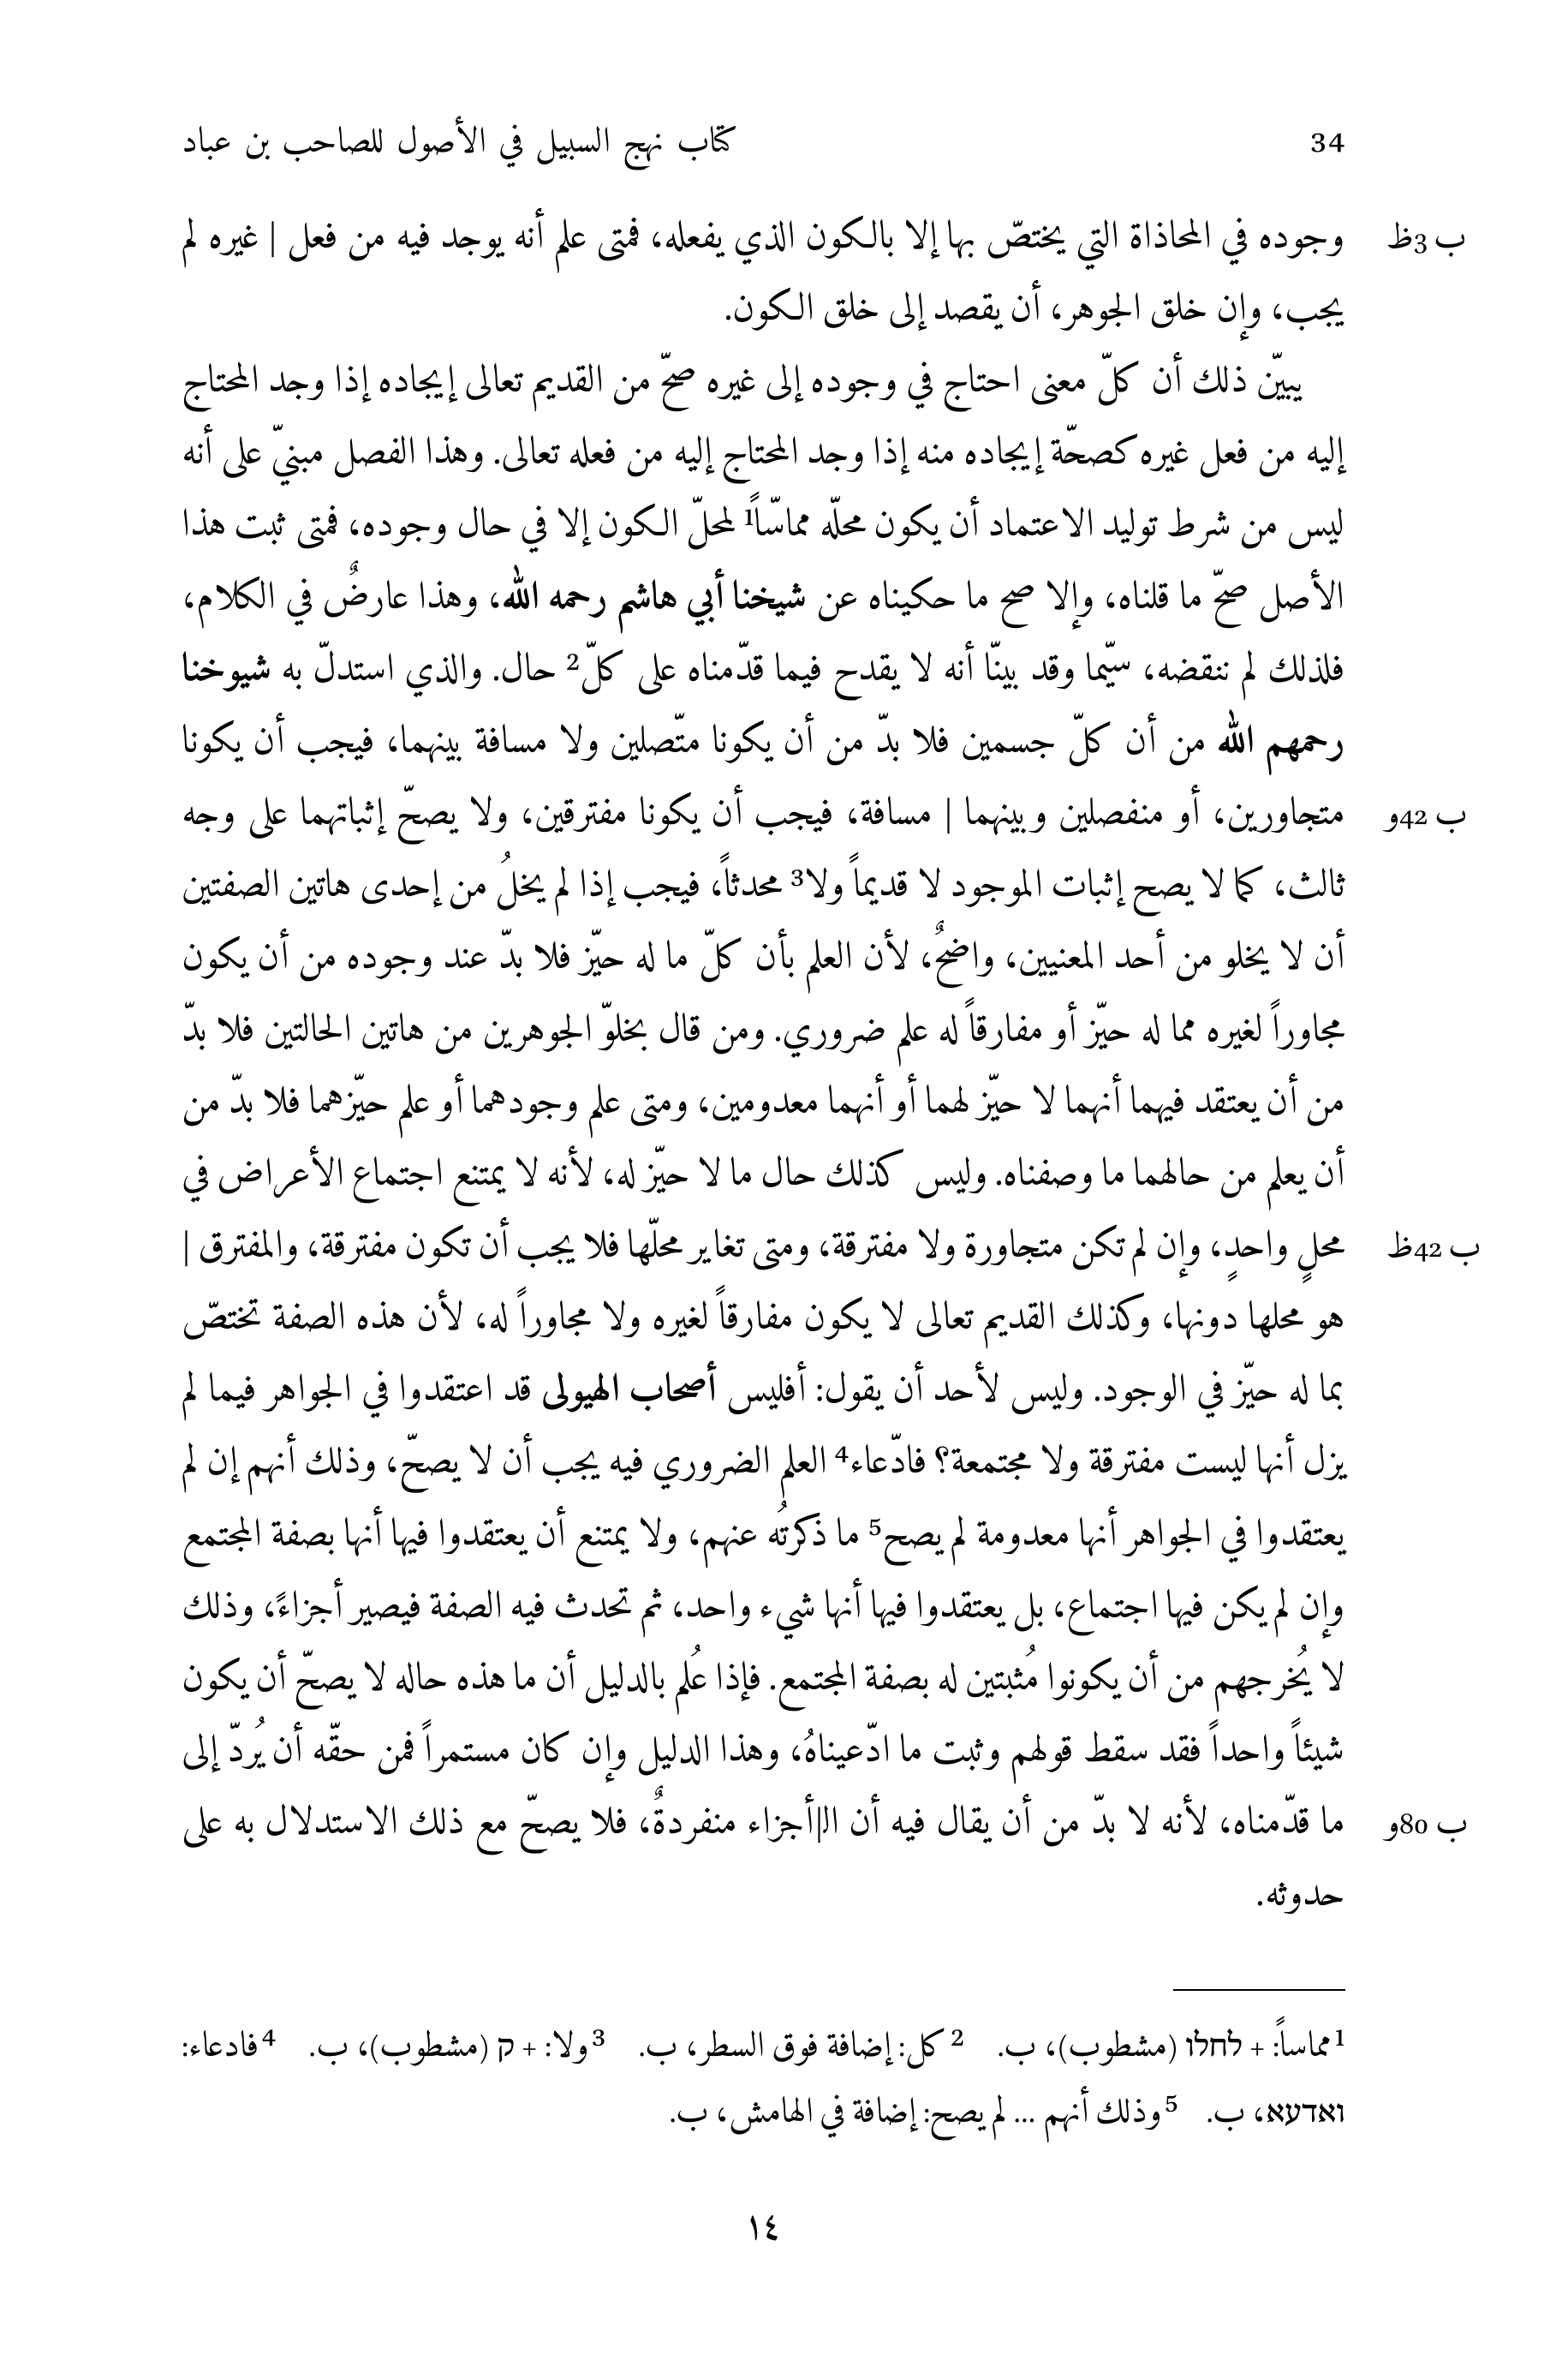 34 كتاب نهج السبيل في الأصول للصاحب بن عباد
ب 3ظ وجوده في المحاذاة التي يختصّ بها إلا بالكون الذي يفعله، فمتى علم أنه يوجد فيه من فعل | غيره لم
يجب، وإن خلق الجوهر، أن يقصد إلى خلق الكون.
يبيّن ذلك أن كلّ معنى احتاج في وجوده إلى غيره صحّ من القديم تعالى إيجاده إذا وجد المحتاج
إليه من فعل غيره كصحّة إيجاده منه إذا وجد المحتاج إليه من فعله تعالى. وهذا الفصل مبنيّ على أنه
ليس من شرط توليد الاعتماد أن يكون محلّه مماسّاً1 لمحلّ الكون إلا في حال وجوده، فمتى ثبت هذا
الأصل صحّ ما قلناه، وإلا صح ما حكيناه عن شيخنا أبي هاشم رحمه الله، وهذا عارضٌ في الكلام،
فلذلك لم ننقضه، سيّما وقد بينّا أنه لا يقدح فيما قدّمناه على كلّ2 حال. والذي استدلّ به شيوخنا
رحمهم الله من أن كلّ جسمين فلا بدّ من أن يكونا متّصلين ولا مسافة بينهما، فيجب أن يكونا
ب 42و متجاورين، أو منفصلين وبينهما | مسافة، فيجب أن يكونا مفترقين، ولا يصحّ إثباتهما على وجه
ثالث، كما لا يصح إثبات الموجود لا قديماً ولا3 محدثاً، فيجب إذا لم يخلُ من إحدى هاتين الصفتين
أن لا يخلو من أحد المعنيين، واضحٌ، لأن العلم بأن كلّ ما له حيّز فلا بدّ عند وجوده من أن يكون
مجاوراً لغيره مما له حيّز أو مفارقاً له علم ضروري. ومن قال بخلوّ الجوهرين من هاتين الحالتين فلا بدّ
من أن يعتقد فيهما أنهما لا حيّز لهما أو أنهما معدومين، ومتى علم وجودهما أو علم حيّزهما فلا بدّ من
أن يعلم من حالهما ما وصفناه. وليس كذلك حال ما لا حيّز له، لأنه لا يمتنع اجتماع الأعراض في
ب 42ظ محلٍ واحدٍ، وإن لم تكن متجاورة ولا مفترقة، ومتى تغاير محلّها فلا يجب أن تكون مفترقة، والمفترق |
هو محلها دونها، وكذلك القديم تعالى لا يكون مفارقاً لغيره ولا مجاوراً له، لأن هذه الصفة تختصّ
بما له حيّز في الوجود. وليس لأحد أن يقول: أفليس أصحاب الهيولى قد اعتقدوا في الجواهر فيما لم
يزل أنها ليست مفترقة ولا مجتمعة؟ فادّعاء4 العلم الضروري فيه يجب أن لا يصحّ، وذلك أنهم إن لم
يعتقدوا في الجواهر أنها معدومة لم يصح5 ما ذكرتُه عنهم، ولا يمتنع أن يعتقدوا فيها أنها بصفة المجتمع
وإن لم يكن فيها اجتماع، بل يعتقدوا فيها أنها شيء واحد، ثم تحدث فيه الصفة فيصير أجزاءً، وذلك
لا يُخرجهم من أن يكونوا مُثبتين له بصفة المجتمع. فإذا عُلم بالدليل أن ما هذه حاله لا يصحّ أن يكون
شيئاً واحداً فقد سقط قولهم وثبت ما ادّعيناهُ، وهذا الدليل وإن كان مستمراً فمن حقّه أن يُردّ إلى
ب 80و ما قدّمناه، لأنه لا بدّ من أن يقال فيه أن ال|أجزاء منفردةٌ، فلا يصحّ مع ذلك الاستدلال به على
حدوثه.
1 مماساً: + לחלו (مشطوب)، ب. 2 كل: إضافة فوق السطر، ب. 3 ولا: + ק (مشطوب)، ب. 4 فادعاء:
ואדעא، ب. 5 وذلك أنهم ... لم يصح: إضافة في الهامش، ب.
١٤